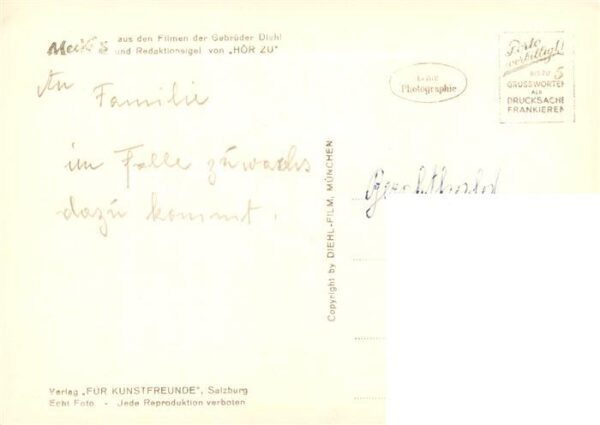 Mecki's aus den Filmen der Gebrüder Diehl
und Redaktionsigel von „HÖR ZU"
An Familie
im Falle zuwachs
dazu kommt.
Photographie
Porto
verbilligt!
BIS ZU 5
GRUSSWORTEN
ALS
DRUCKSACHE
FRANKIEREN
Copyright by DIEHL-FILM, MÜNCHEN
Verlag „FÜR KUNSTFREUNDE", Salzburg
Echt Foto - Jede Reproduktion verboten